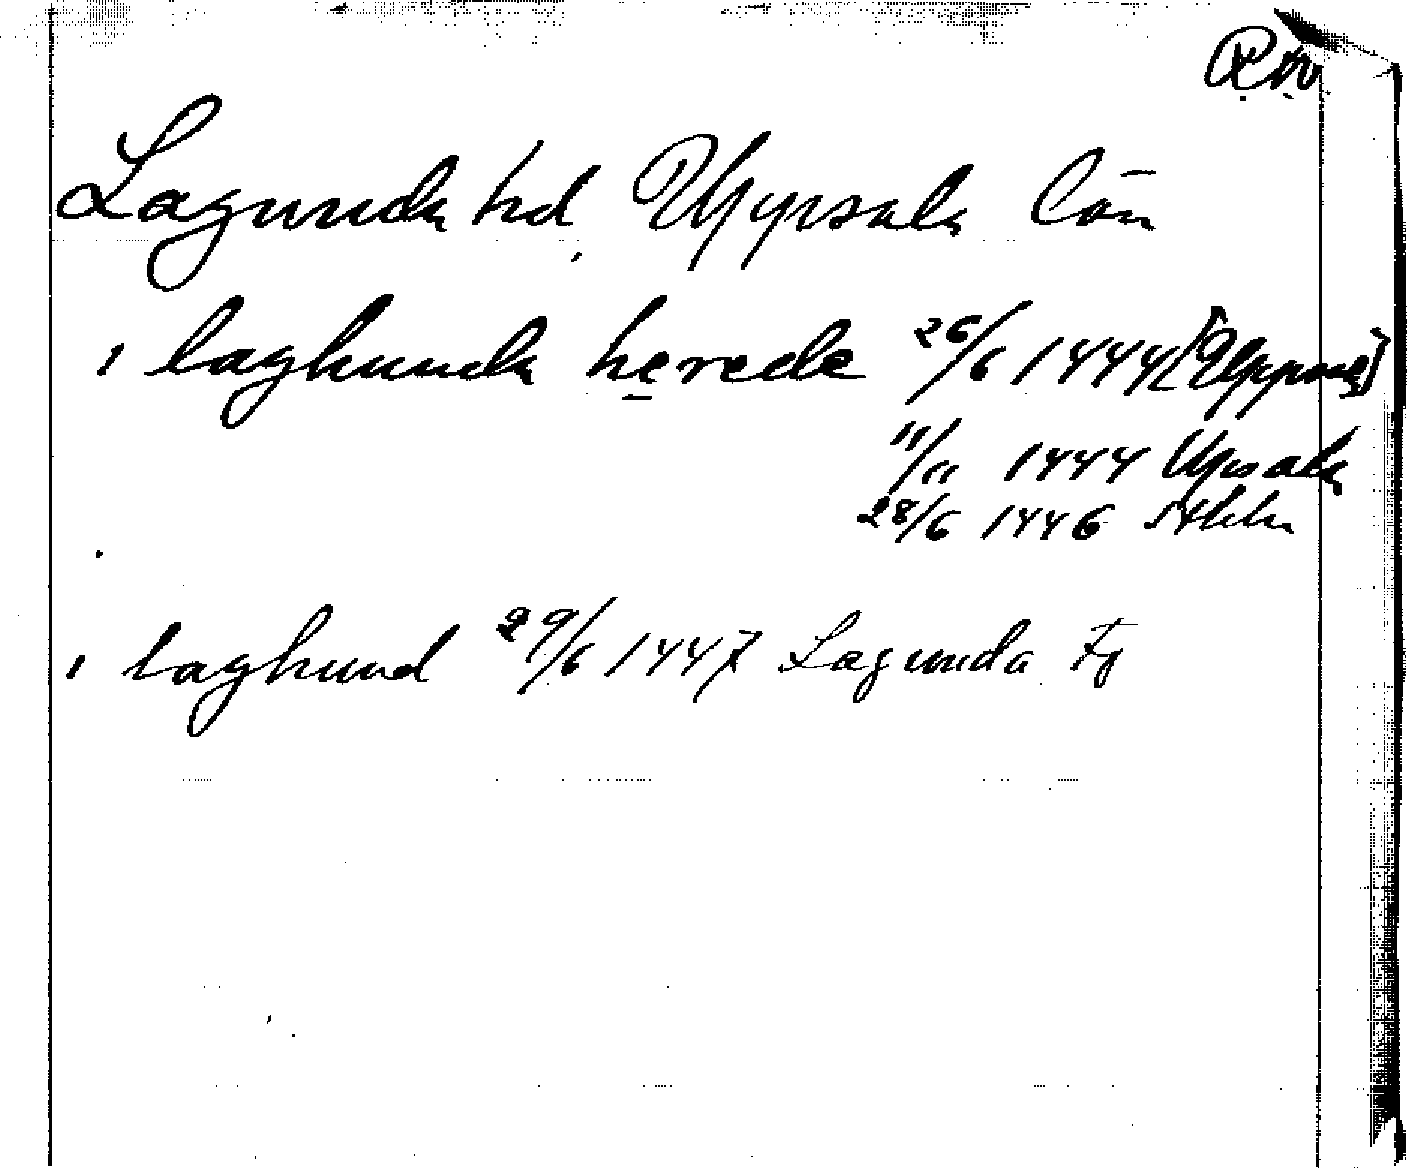 Lagunda hd, Uppsala län
i laghunda herede 26/6 1444 [Uppsala]
11/11 1444 Upsala
28/6 1446 Sthlm
i laghund 29/6 1447 Lagunda Fg